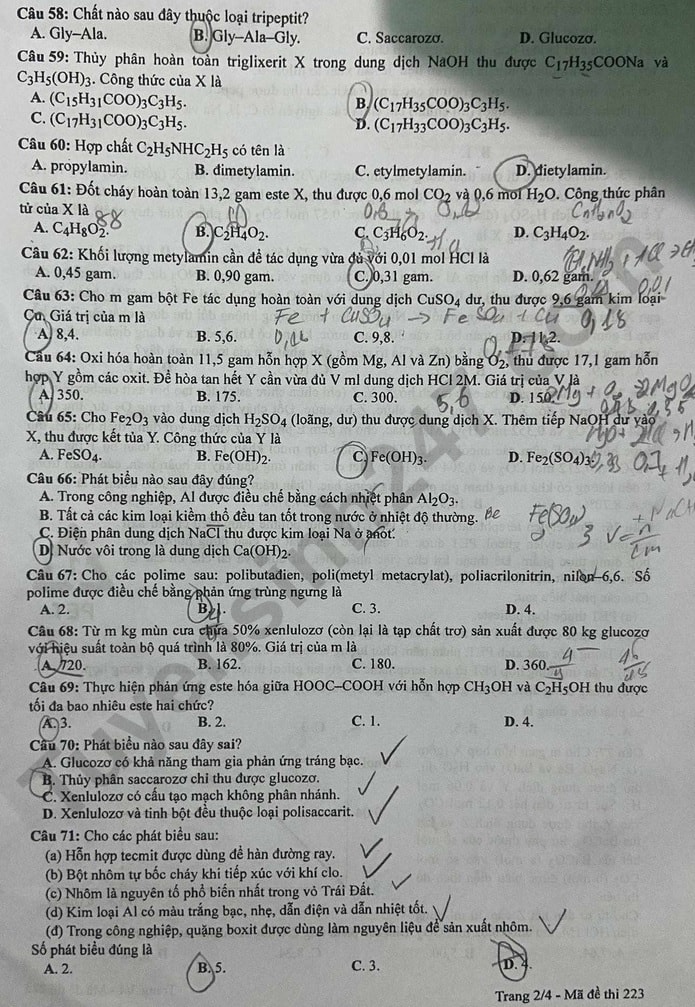 Câu 58: Chất nào sau đây thuộc loại tripeptit?
A. Gly–Ala. B. Gly–Ala–Gly. C. Saccarozơ. D. Glucozơ.
Câu 59: Thủy phân hoàn toàn triglixerit X trong dung dịch NaOH thu được C17H35COONa và
C3H5(OH)3. Công thức của X là
A. (C15H31COO)3C3H5. B. (C17H35COO)3C3H5.
C. (C17H31COO)3C3H5. D. (C17H33COO)3C3H5.
Câu 60: Hợp chất C2H5NHC2H5 có tên là
A. propylamin. B. dimetylamin. C. etylmetylamin. D. đietylamin.
Câu 61: Đốt cháy hoàn toàn 13,2 gam este X, thu được 0,6 mol CO2 và 0,6 mol H2O. Công thức phân
tử của X là
A. C4H8O2. B. C2H4O2. C. C3H6O2. D. C3H4O2.
Câu 62: Khối lượng metylamin cần để tác dụng vừa đủ với 0,01 mol HCl là
A. 0,45 gam. B. 0,90 gam. C. 0,31 gam. D. 0,62 gam.
Câu 63: Cho m gam bột Fe tác dụng hoàn toàn với dung dịch CuSO4 dư, thu được 9,6 gam kim loại
Cu. Giá trị của m là
Fe + CuSO4 → FeSO4 + Cu
A. 8,4. B. 5,6. C. 9,8. D. 11,2.
Câu 64: Oxi hóa hoàn toàn 11,5 gam hỗn hợp X (gồm Mg, Al và Zn) bằng O2, thu được 17,1 gam hỗn
hợp Y gồm các oxit. Để hòa tan hết Y cần vừa đủ V ml dung dịch HCl 2M. Giá trị của V là
A. 350. B. 175. C. 300. D. 150.
5,6
Câu 65: Cho Fe2O3 vào dung dịch H2SO4 (loãng, dư) thu được dung dịch X. Thêm tiếp NaOH dư vào
X, thu được kết tủa Y. Công thức của Y là
A. FeSO4. B. Fe(OH)2. C. Fe(OH)3. D. Fe2(SO4)3.
Câu 66: Phát biểu nào sau đây đúng?
A. Trong công nghiệp, Al được điều chế bằng cách nhiệt phân Al2O3.
B. Tất cả các kim loại kiềm thổ đều tan tốt trong nước ở nhiệt độ thường. Be
C. Điện phân dung dịch NaCl thu được kim loại Na ở anot.
D. Nước vôi trong là dung dịch Ca(OH)2.
Câu 67: Cho các polime sau: polibutađien, poli(metyl metacrylat), poliacrilonitrin, nilon–6,6. Số
polime được điều chế bằng phản ứng trùng ngưng là
A. 2. B. 1. C. 3. D. 4.
Câu 68: Từ m kg mùn cưa chứa 50% xenlulozơ (còn lại là tạp chất trơ) sản xuất được 80 kg glucozơ
với hiệu suất toàn bộ quá trình là 80%. Giá trị của m là
A. 720. B. 162. C. 180. D. 360.
Câu 69: Thực hiện phản ứng este hóa giữa HOOC–COOH với hỗn hợp CH3OH và C2H5OH thu được
tối đa bao nhiêu este hai chức?
A. 3. B. 2. C. 1. D. 4.
Câu 70: Phát biểu nào sau đây sai?
A. Glucozơ có khả năng tham gia phản ứng tráng bạc.
B. Thủy phân saccarozơ chỉ thu được glucozơ.
C. Xenlulozơ có cấu tạo mạch không phân nhánh.
D. Xenlulozơ và tinh bột đều thuộc loại polisaccarit.
Câu 71: Cho các phát biểu sau:
(a) Hỗn hợp tecmit được dùng để hàn đường ray.
(b) Bột nhôm tự bốc cháy khi tiếp xúc với khí clo.
(c) Nhôm là nguyên tố phổ biến nhất trong vỏ Trái Đất.
(d) Kim loại Al có màu trắng bạc, nhẹ, dẫn điện và dẫn nhiệt tốt.
(đ) Trong công nghiệp, quặng boxit được dùng làm nguyên liệu để sản xuất nhôm.
Số phát biểu đúng là
A. 2. B. 5. C. 3. D. 4.
Trang 2/4 - Mã đề thi 223